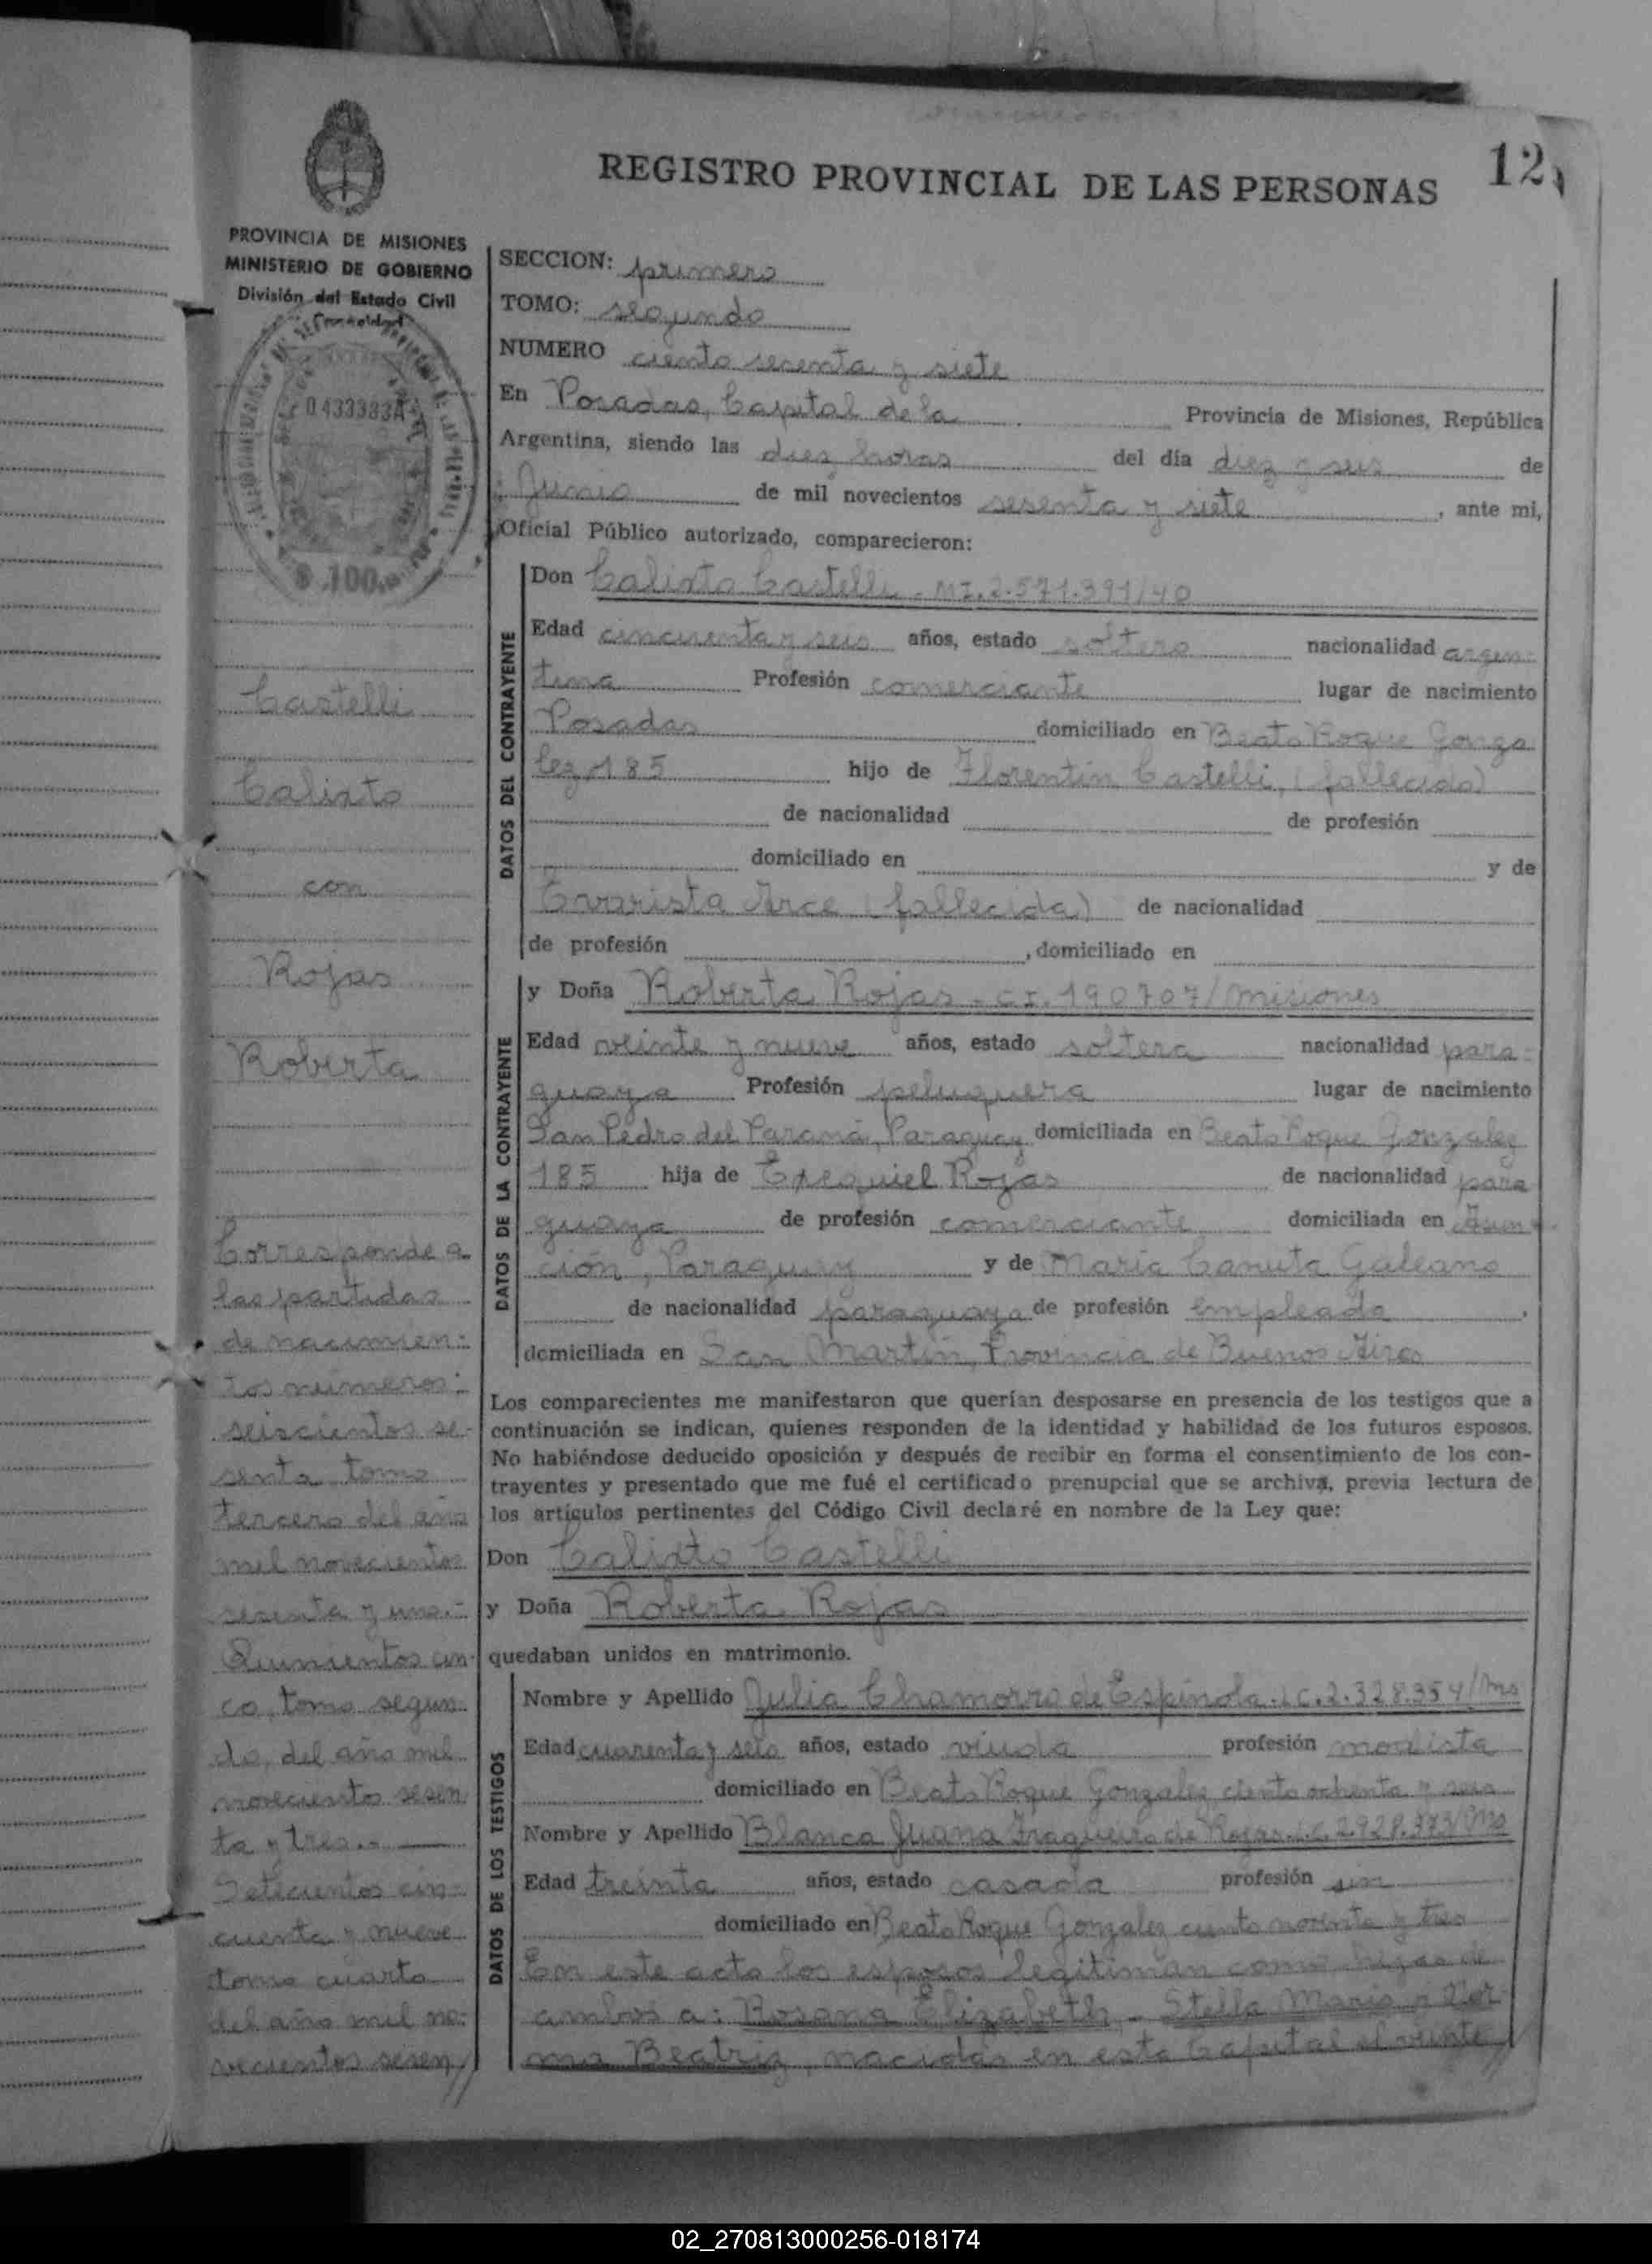 REGISTRO PROVINCIAL DE LAS PERSONAS
12
PROVINCIA DE MISIONES
MINISTERIO DE GOBIERNO
División del Estado Civil
0433383A
$ 100
Castelli
Calixto
con
Rojas
Roberta
Corresponde a
las partidas
de nacimien-
tos números:
seiscientos se-
senta tomo
tercero del año
mil novecientos
sesenta y uno.-
Quinientos cin-
co, tomo segun-
do, del año mil
novecientos sesen
ta y tres.-
Setecientos cin-
cuenta y nueve
tomo cuarto
del año mil no-
vecientos sesen//
SECCION: primero
TOMO: segundo
NUMERO ciento sesenta y siete
En Posadas, Capital de la Provincia de Misiones, República
Argentina, siendo las diez horas del día diez y seis de
Junio de mil novecientos sesenta y siete, ante mi,
Oficial Público autorizado, comparecieron:
DATOS DEL CONTRAYENTE
Don Calixto Castelli - MI. 2.571.391/40
Edad cincuenta y seis años, estado soltero nacionalidad argen-
tina Profesión comerciante lugar de nacimiento
Posadas domiciliado en Beato Roque Gonza
lez 185 hijo de Florentín Castelli, (fallecido)
de nacionalidad de profesión
domiciliado en y de
Evarista Arce (fallecida) de nacionalidad
de profesión , domiciliado en
DATOS DE LA CONTRAYENTE
y Doña Roberta Rojas - CI. 190707/Misiones
Edad veinte y nueve años, estado soltera nacionalidad para-
guaya Profesión peluquera lugar de nacimiento
San Pedro del Paraná, Paraguay domiciliada en Beato Roque Gonzalez
185 hija de Exequiel Rojas de nacionalidad para
guaya de profesión comerciante domiciliada en Asun-
ción, Paraguay y de María Canuta Galeano
de nacionalidad paraguaya de profesión empleada,
domiciliada en San Martín, Provincia de Buenos Aires
Los comparecientes me manifestaron que querían desposarse en presencia de los testigos que a
continuación se indican, quienes responden de la identidad y habilidad de los futuros esposos.
No habiéndose deducido oposición y después de recibir en forma el consentimiento de los con-
trayentes y presentado que me fué el certificado prenupcial que se archiva, previa lectura de
los artículos pertinentes del Código Civil declaré en nombre de la Ley que:
Don Calixto Castelli
y Doña Roberta Rojas
quedaban unidos en matrimonio.
DATOS DE LOS TESTIGOS
Nombre y Apellido Julia Chamorro de Espínola. LC. 2.328.354/Ms
Edad cuarenta y seis años, estado viuda profesión modista
domiciliado en Beato Roque Gonzalez ciento ochenta y seis
Nombre y Apellido Blanca Juana Fragueiro de Rojas. LC. 2.928.373/Ms
Edad treinta años, estado casada profesión sin
domiciliado en Beato Roque Gonzalez ciento noventa y tres
En este acto los esposos legitiman como hijas de
ambos a: Rosana Elizabeth - Stella Maris y Nor-
ma Beatriz, nacidas en esta Capital el veinte//
02_270813000256-018174